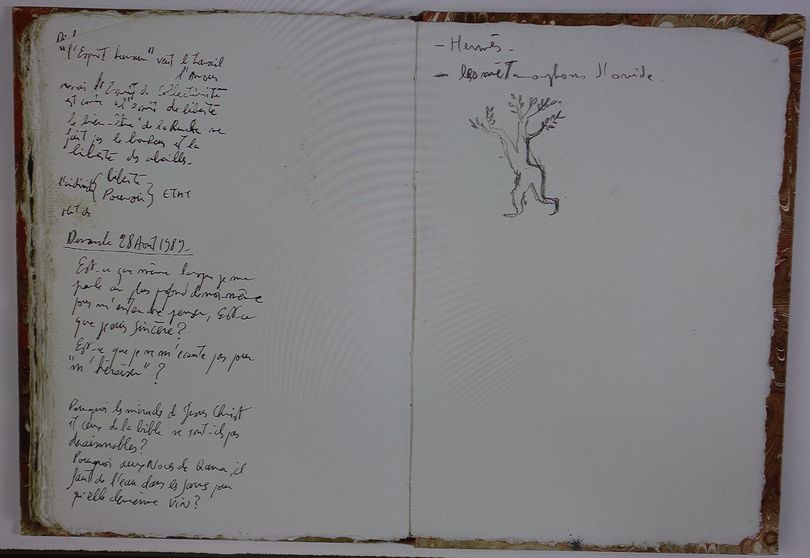 "l'Esprit humain" veut le travail
l'Amour
mais l'Esprit de collectivité
est contre l'esprit de liberté
le bien-être de la Ruche ne
fait pas le bonheur et la
liberté des abeilles.
l'individu { liberté
Pouvoir } ETAT
Dimanche 28 Août 1989.
Est-ce que même lorsque je me
parle au plus profond de moi-même
pour m'entendre penser, Est-ce
que je suis sincère?
Est-ce que je ne m'écoute pas pour
"m'héroïser"?
Pourquoi les miracles de Jesus Christ
et ceux de la bible ne sont-ils pas
déraisonnables?
Pourquoi aux Noces de Qana, il
faut de l'eau dans les jarres pour
qu'elle devienne VIN?
- Hermès -
- les métamorphoses d'ovide.